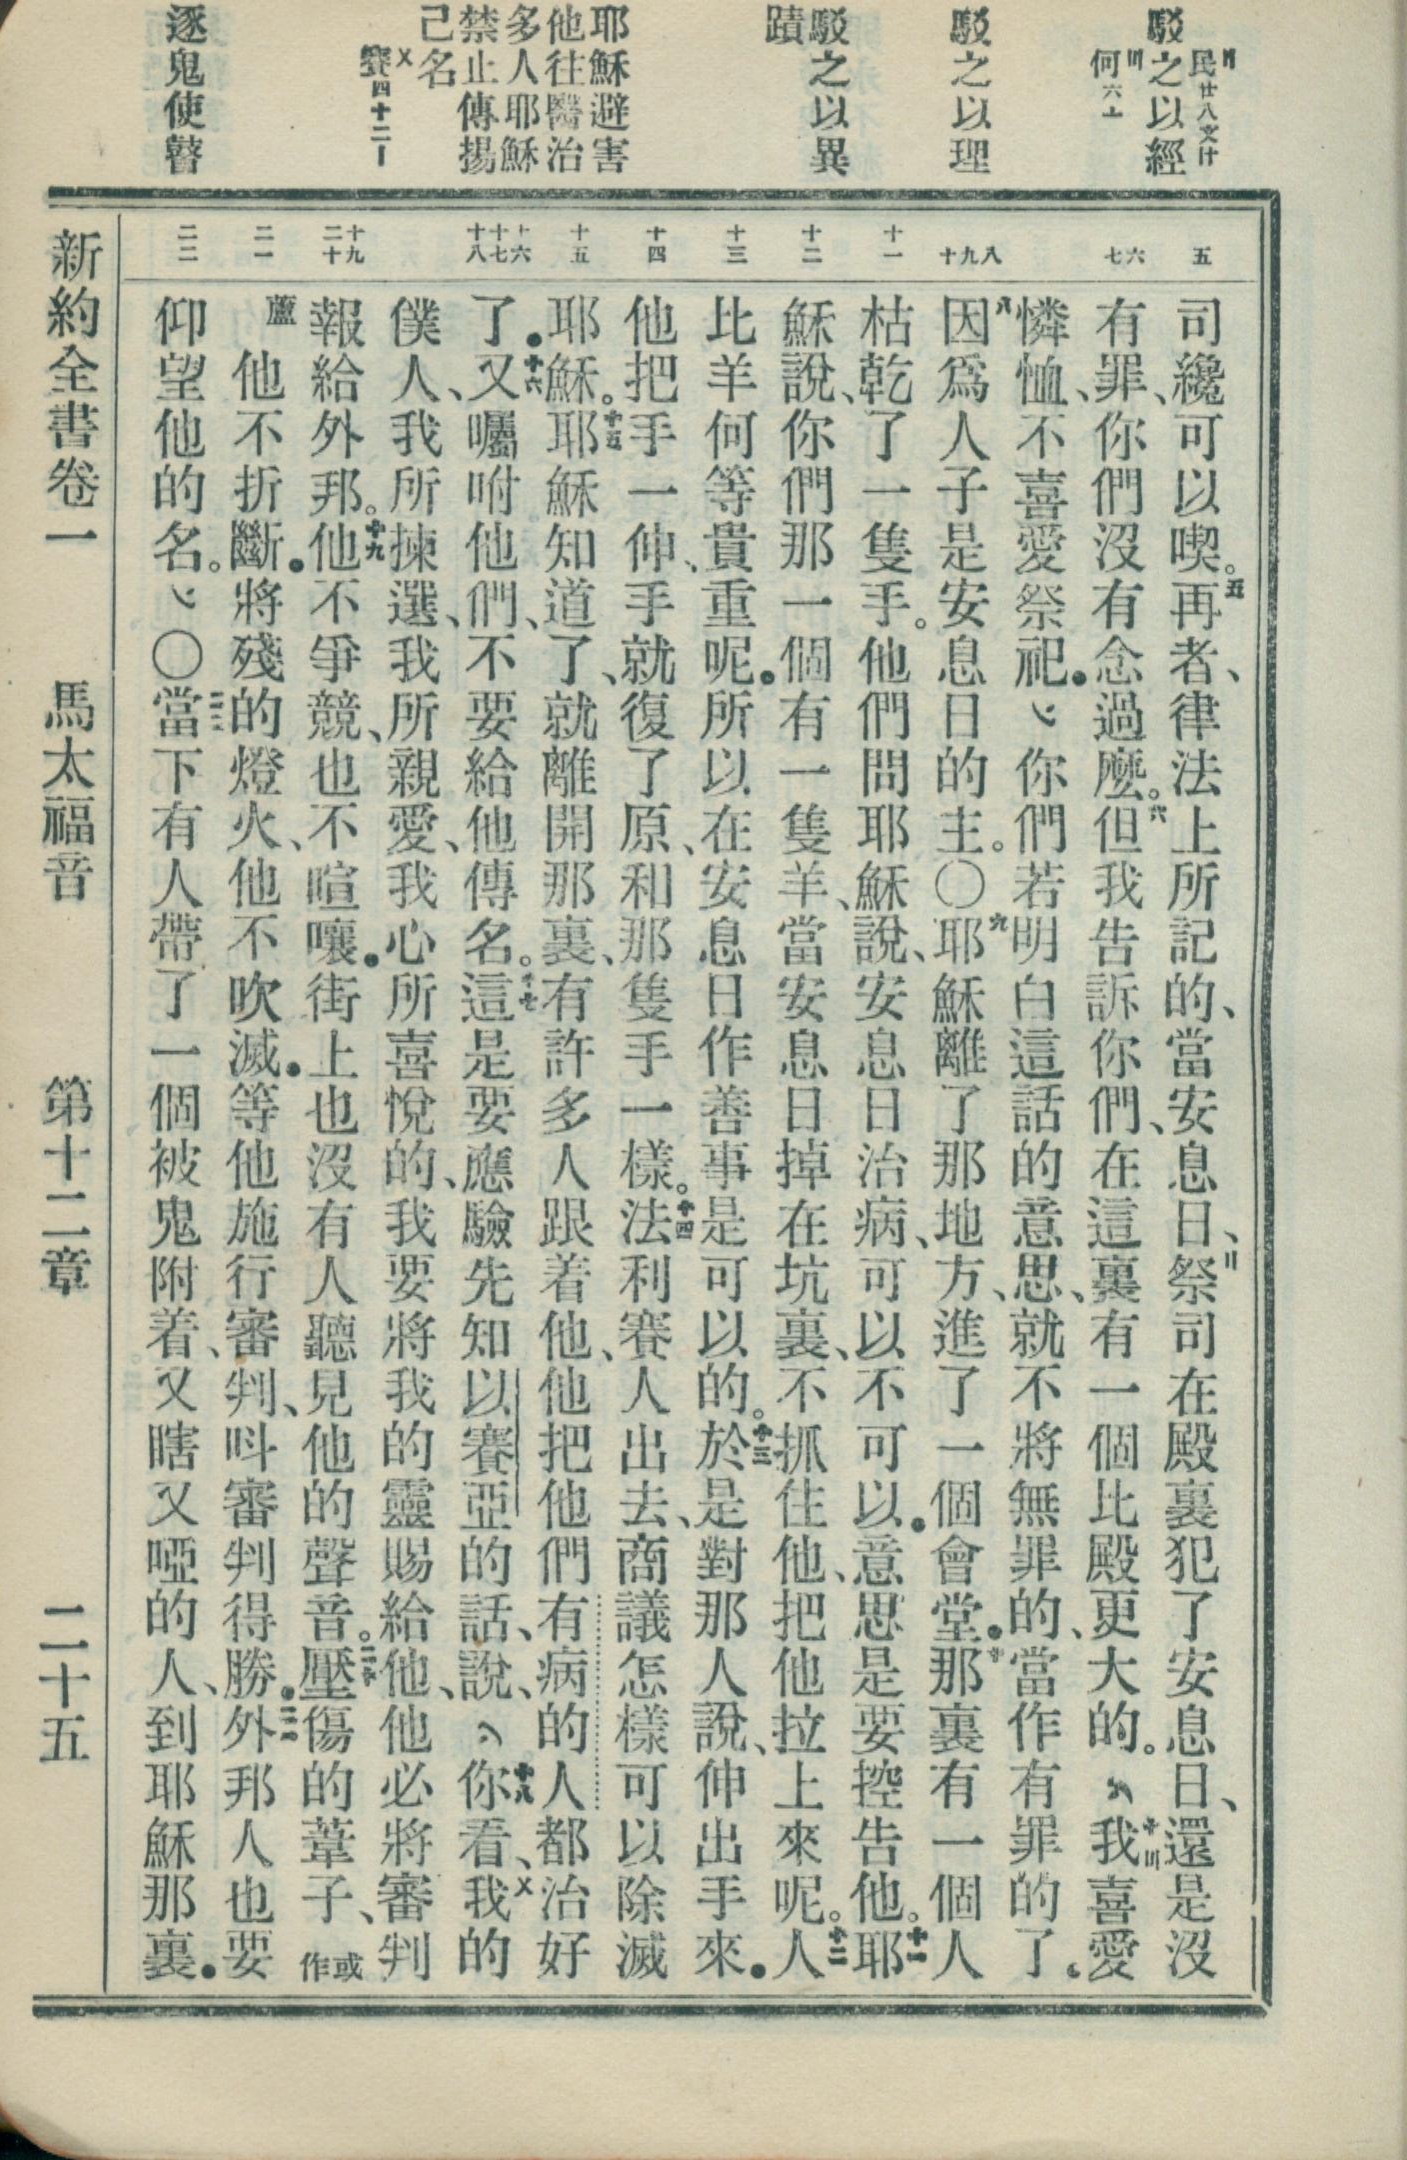 民廿八
駁之以經
何六
駁之以理
駁之以異
蹟
耶穌避害
他往醫治
多人耶穌
禁止傳揚
己名
賽四十二
逐鬼使瞽
五
六
七
八
九
十
十一
十二
十三
十四
十五
十六
十七
十八
十九
二十
二一
二二
司纔可以喫。五再者、律法上所記的、當安息日、祭司在殿裏犯了安息日、還是沒
有罪、你們沒有念過麼。六但我告訴你們、在這裏有一個比殿更大的。七我喜愛
憐恤、不喜愛祭祀．你們若明白這話的意思、就不將無罪的、當作有罪的了。
八因爲人子是安息日的主。〇九耶穌離了那地方、進了一個會堂．十那裏有一個人
枯乾了一隻手。他們問耶穌說、安息日治病、可以不可以．意思是要控告他。十一耶
穌說、你們那一個有一隻羊、當安息日掉在坑裏、不抓住他、把他拉上來呢。十二人
比羊何等貴重呢．所以在安息日作善事是可以的。十三於是對那人說、伸出手來．
他把手一伸、手就復了原、和那隻手一樣。十四法利賽人出去、商議怎樣可以除滅
耶穌。十五耶穌知道了、就離開那裏、有許多人跟着他、他把他們有病的人都治好
了．十六又囑咐他們、不要給他傳名。十七這是要應驗先知以賽亞的話、說、十八你看、我的
僕人、我所揀選、我所親愛、我心所喜悅的、我要將我的靈賜給他、他必將審判
報給外邦。十九他不爭競、也不喧嚷．街上也沒有人聽見他的聲音。二十壓傷的葦子、或作
蘆他不折斷．將殘的燈火、他不吹滅．等他施行審判、呌審判得勝．二一外邦人也要
仰望他的名。〇二二當下有人帶了一個被鬼附着、又瞎又啞的人、到耶穌那裏．
新約全書卷一　馬太福音　第十二章　二十五